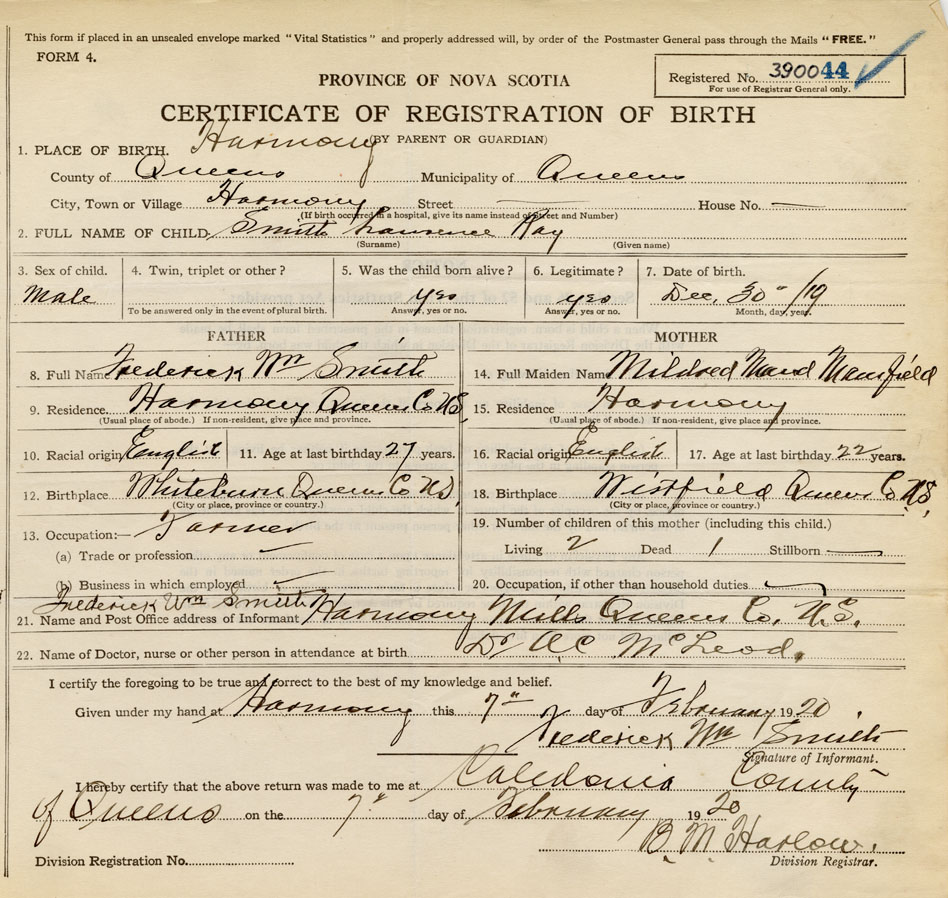 This form if placed in an unsealed envelope marked "Vital Statistics" and properly addressed will, by order of the Postmaster General pass through the Mails "FREE."
FORM 4.
Registered No. 390044
For use of Registrar General only.
PROVINCE OF NOVA SCOTIA
CERTIFICATE OF REGISTRATION OF BIRTH
(BY PARENT OR GUARDIAN)
1. PLACE OF BIRTH. Harmony
County of Queens Municipality of Queens
City, Town or Village Harmony Street — House No. —
(If birth occurred in a hospital, give its name instead of Street and Number)
2. FULL NAME OF CHILD Smith Lawrence Ray
(Surname) (Given name)
3. Sex of child. 4. Twin, triplet or other? 5. Was the child born alive? 6. Legitimate? 7. Date of birth.
Male yes yes Dec, 30" /19
To be answered only in the event of plural birth. Answer, yes or no. Answer, yes or no. Month, day, year.
FATHER
8. Full Name Frederick Wm Smith
9. Residence. Harmony Queens Co N.S.
(Usual place of abode.) If non-resident, give place and province.
10. Racial origin English 11. Age at last birthday 27 years.
12. Birthplace Whiteburn Queens Co N.S.
(City or place, province or country.)
13. Occupation:— Farmer
(a) Trade or profession
(b) Business in which employed
MOTHER
14. Full Maiden Name Mildred Maud Mansfield
15. Residence Harmony
(Usual place of abode.) If non-resident, give place and province.
16. Racial origin English 17. Age at last birthday 22 years.
18. Birthplace Westfield Queens Co N.S.
(City or place, province or country.)
19. Number of children of this mother (including this child.)
Living 2 Dead 1 Stillborn —
20. Occupation, if other than household duties.
Frederick Wm Smith
21. Name and Post Office address of Informant Harmony Mills Queens Co. N.S.
22. Name of Doctor, nurse or other person in attendance at birth Dr A.C. McLeod.
I certify the foregoing to be true and correct to the best of my knowledge and belief.
Given under my hand at Harmony this 7" day of February 1920
Frederick Wm Smith
Signature of Informant.
I hereby certify that the above return was made to me at Caledonia County
of Queens on the 7" day of February 1920
B. M. Harlow.
Division Registration No. Division Registrar.